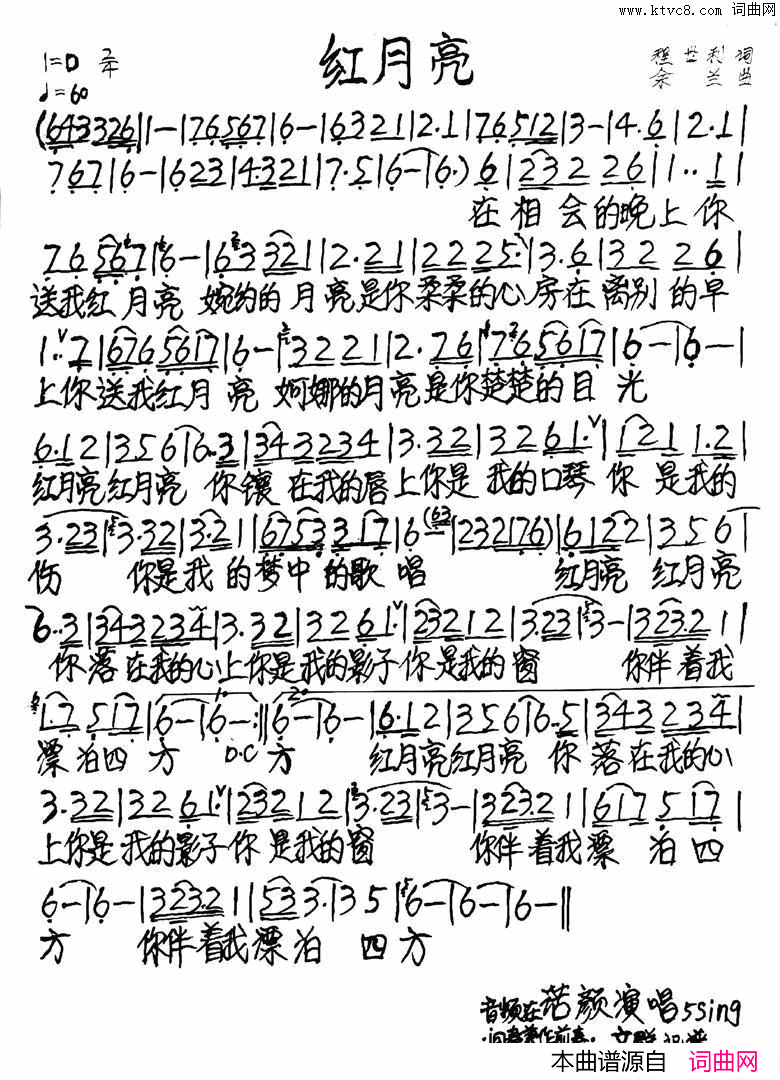 www.ktvc8.com 词曲网
红月亮
1=D 2/4
♩=60
程世利 词
余兰 曲
(643326|1-|76567|6-|6321|2·1|76512|3-|4·6|2·1|
767|6-|6223|4321|7·5|6-|6·)6|232 226|1··1|
在相会的晚上你
76567|6-|63321|2·21|2225·|3·6|322 26|
送我红月亮 婉约的月亮是你柔柔的心房在离别的早
1··7|676 5617|6-|3221|2·76|76 5617|6-|6-|
上你送我红月亮 婀娜的月亮是你楚楚的目光
6·12|356|6··3|343234|3·32|32 61·|121 1·21|
红月亮红月亮 你镶在我的唇上你是我的口琴你是我的
3·23|3·32|3·21|6753 317|6 (63|232176)|6122|356|
伤 你是我的梦中的歌唱 红月亮 红月亮
6··3|343234|3·32|32 61·|23212|3·23|3-|323·21|
你落在我的心上你是我的影子你是我的窗 你伴着我
1·7 517|6-|6-:||6-|6-|6·12|356|6··5|343234|
漂泊四方 D.C 方 红月亮红月亮 你落在我的心
3·32|32 61·|23212|3·23|3-|323·21|617 517|
上你是我的影子你是我的窗 你伴着我漂泊四
6-|6-|323·21|533·|35|6-|6-|6-||
方 你伴着我漂泊 四方
音频在诺颜演唱5Sing
本曲谱源自 词曲网